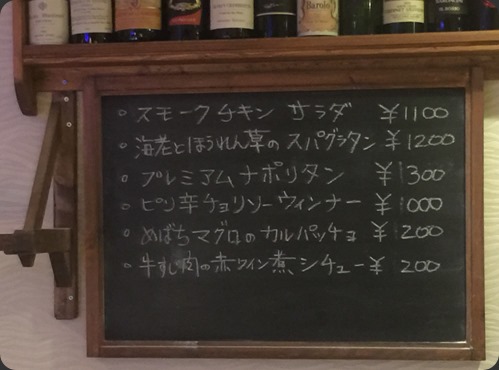 Barolo
○ スモークチキン サラダ ¥1100
○ 海老とほうれん草のスパグラタン ¥1200
○ プレミアムナポリタン ¥1300
○ ピリ辛チョリソーウィンナー ¥1000
○ めばちマグロのカルパッチョ ¥1200
○ 牛すじ肉の赤ワイン煮シチュー ¥1200